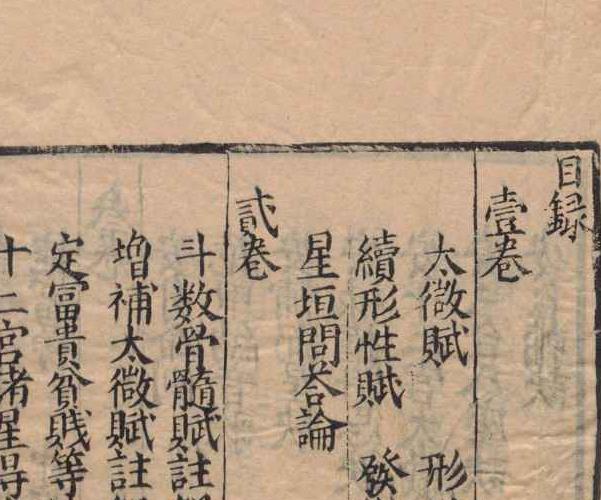 目録
壹卷
太微賦　形
續形性賦　發
星垣問荅論
貳卷
斗数骨髓賦註
増補太微賦註
定富貴貧賤等
十二宫諸星得